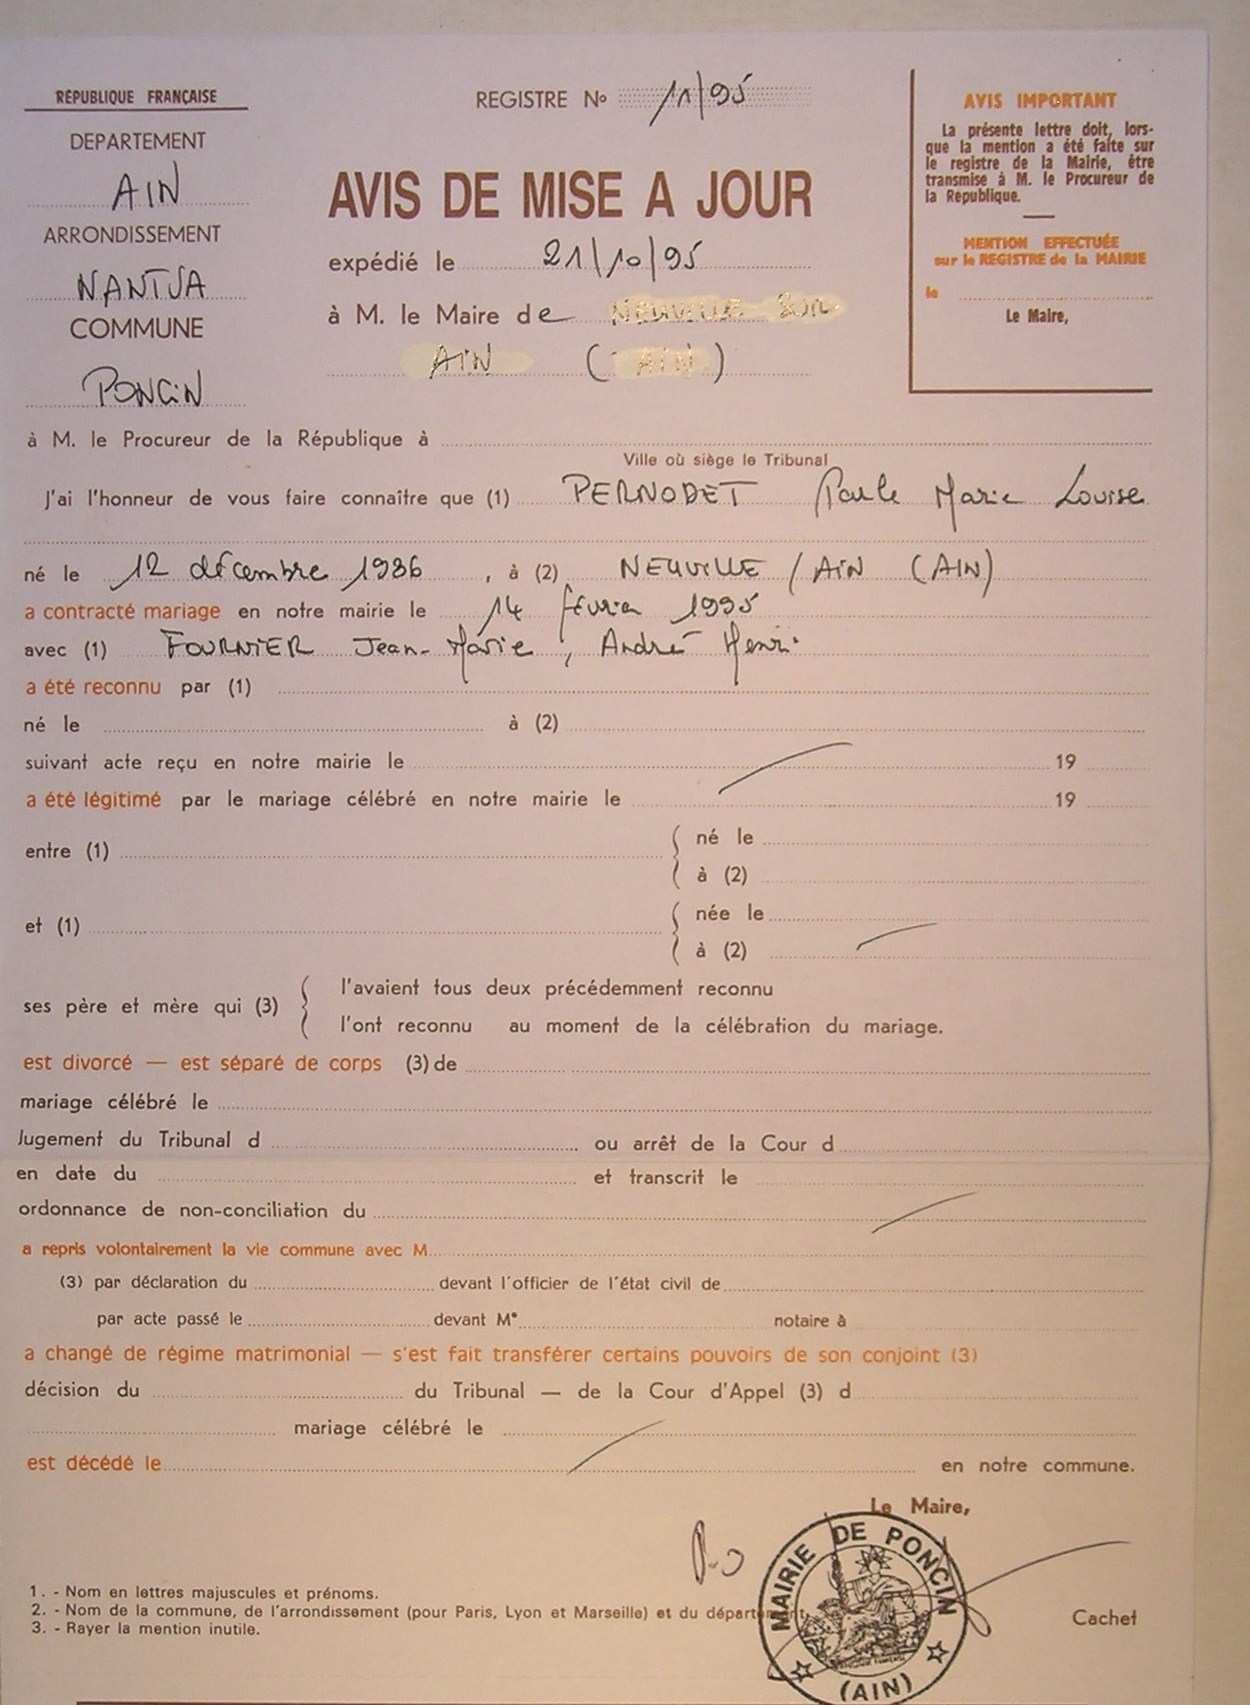 RÉPUBLIQUE FRANÇAISE
DEPARTEMENT
AIN
ARRONDISSEMENT
NANTUA
COMMUNE
PONCIN
REGISTRE No 11/95
AVIS DE MISE A JOUR
expédié le 21/10/95
à M. le Maire de NEUVILLE SUR
AIN (AIN)
AVIS IMPORTANT
La présente lettre doit, lors-
que la mention a été faite sur
le registre de la Mairie, être
transmise à M. le Procureur de
la République.
MENTION EFFECTUÉE
sur le REGISTRE de la MAIRIE
le
Le Maire,
à M. le Procureur de la République à
Ville où siège le Tribunal
J'ai l'honneur de vous faire connaître que (1) PERNODET Paule Marie Louise
né le 12 décembre 1936, à (2) NEUVILLE / AIN (AIN)
a contracté mariage en notre mairie le 14 février 1995
avec (1) FOURNIER Jean-Marie, André Henri
a été reconnu par (1)
né le à (2)
suivant acte reçu en notre mairie le 19
a été légitimé par le mariage célébré en notre mairie le 19
entre (1) né le
à (2)
et (1) née le
à (2)
ses père et mère qui (3) l'avaient tous deux précédemment reconnu
l'ont reconnu au moment de la célébration du mariage.
est divorcé — est séparé de corps (3) de
mariage célébré le
Jugement du Tribunal d ou arrêt de la Cour d
en date du et transcrit le
ordonnance de non-conciliation du
a repris volontairement la vie commune avec M
(3) par déclaration du devant l'officier de l'état civil de
par acte passé le devant Me notaire à
a changé de régime matrimonial — s'est fait transférer certains pouvoirs de son conjoint (3)
décision du du Tribunal — de la Cour d'Appel (3) d
mariage célébré le
est décédé le en notre commune.
Le Maire,
MAIRIE DE PONCIN
(AIN)
Cachet
1. - Nom en lettres majuscules et prénoms.
2. - Nom de la commune, de l'arrondissement (pour Paris, Lyon et Marseille) et du département.
3. - Rayer la mention inutile.